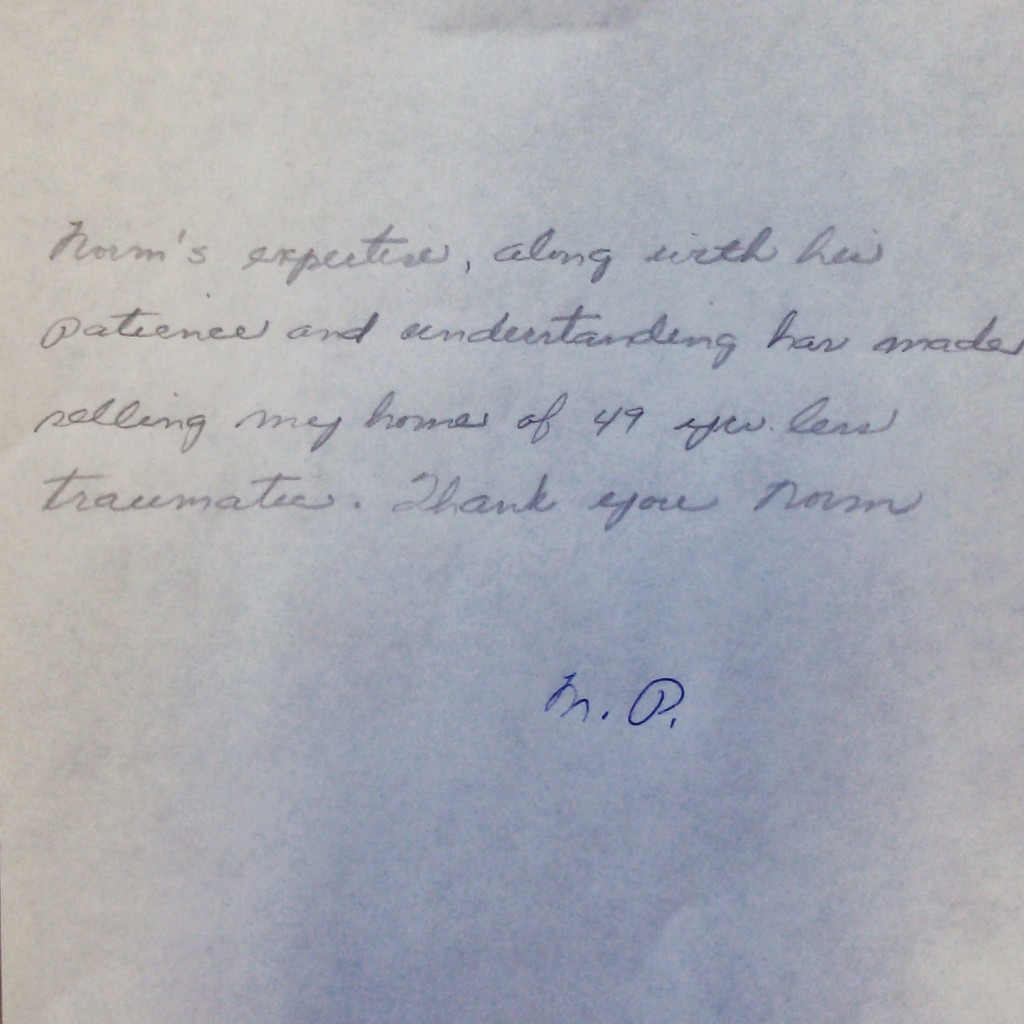 Norm's expertise, along with his
patience and understanding has made
selling my home of 49 yrs. less
traumatic. Thank you Norm
M. P.